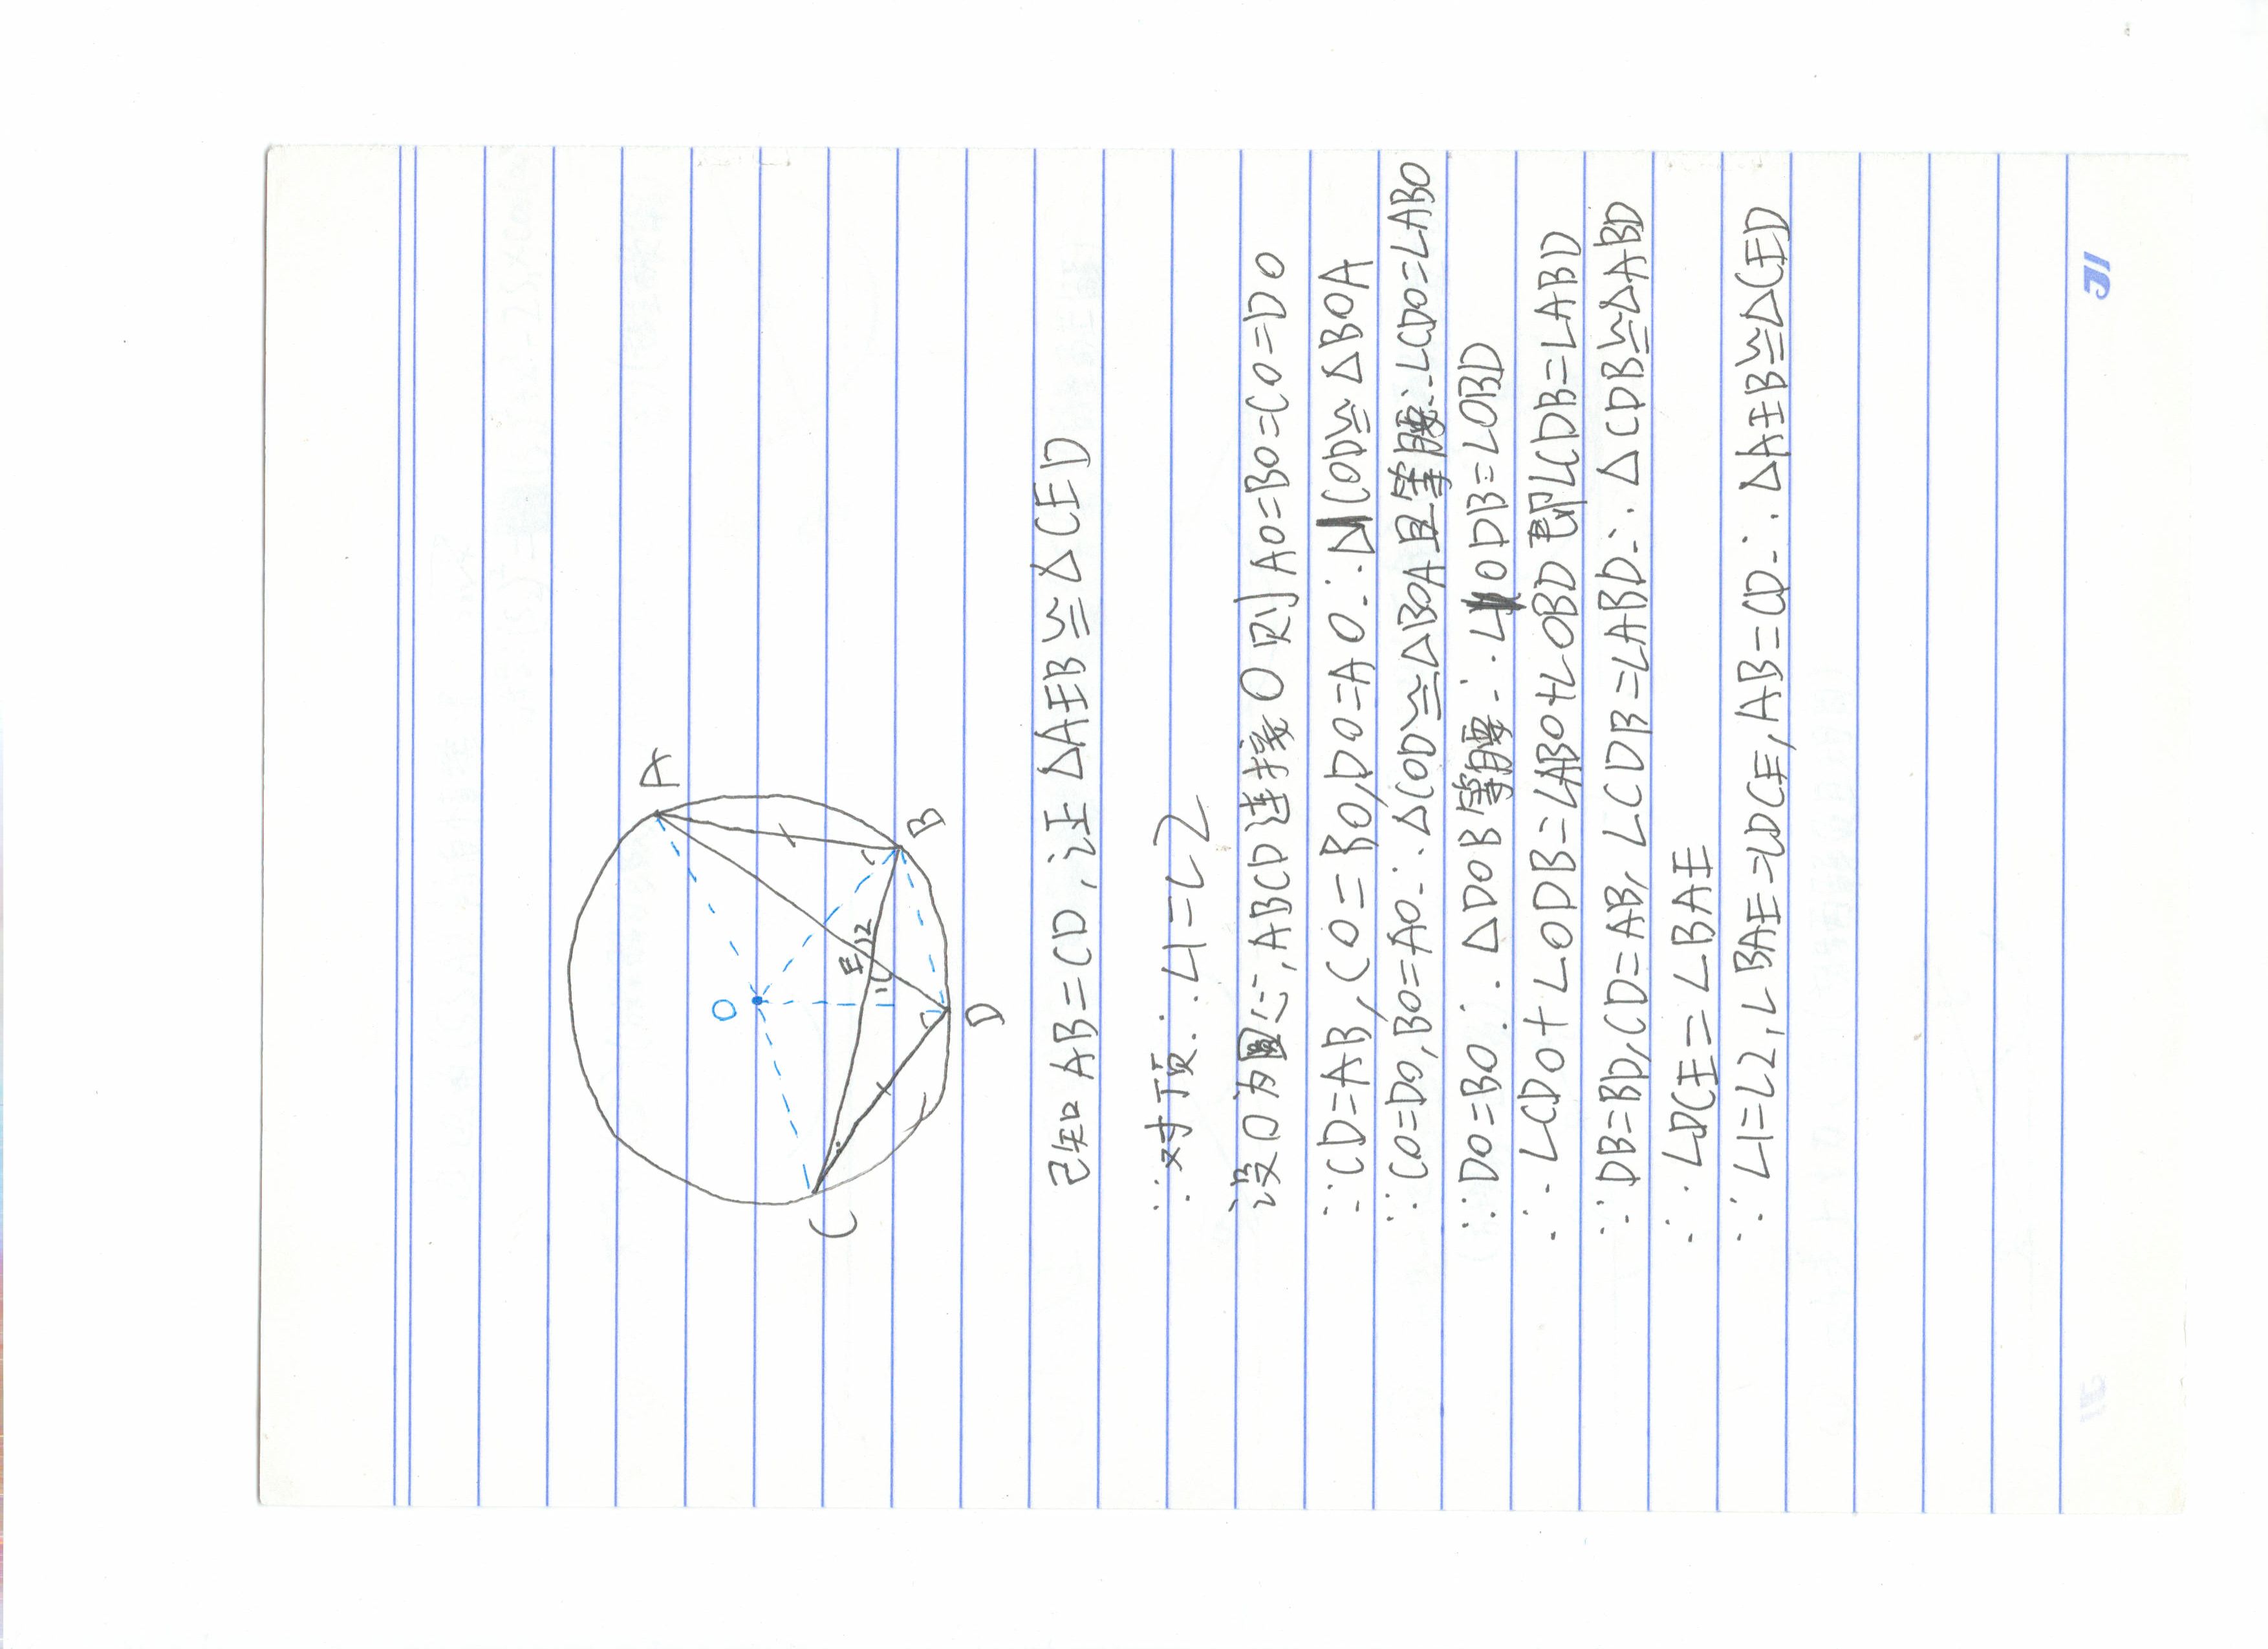 A
B
C
D
O
E
1
2
已知 AB=CD,证 △AEB≌△CED
∵对顶∴∠1=∠2
设O为圆心,ABCD连接O则AO=BO=CO=DO
∵CD=AB,CO=BO,DO=AO∴△COD≌△BOA
∵CO=DO,BO=AO∴△COD≌△BOA且等腰∴∠CDO=∠ABO
∵DO=BO∴△DOB等腰∴∠ODB=∠OBD
∴∠CDO+∠ODB=∠ABO+∠OBD即∠CDB=∠ABD
∵DB=BD,CD=AB,∠CDB=∠ABD∴△CDB≌△ABD
∴∠DCE=∠BAE
∵∠1=∠2,∠BAE=∠DCE,AB=CD∴△AEB≌△CED